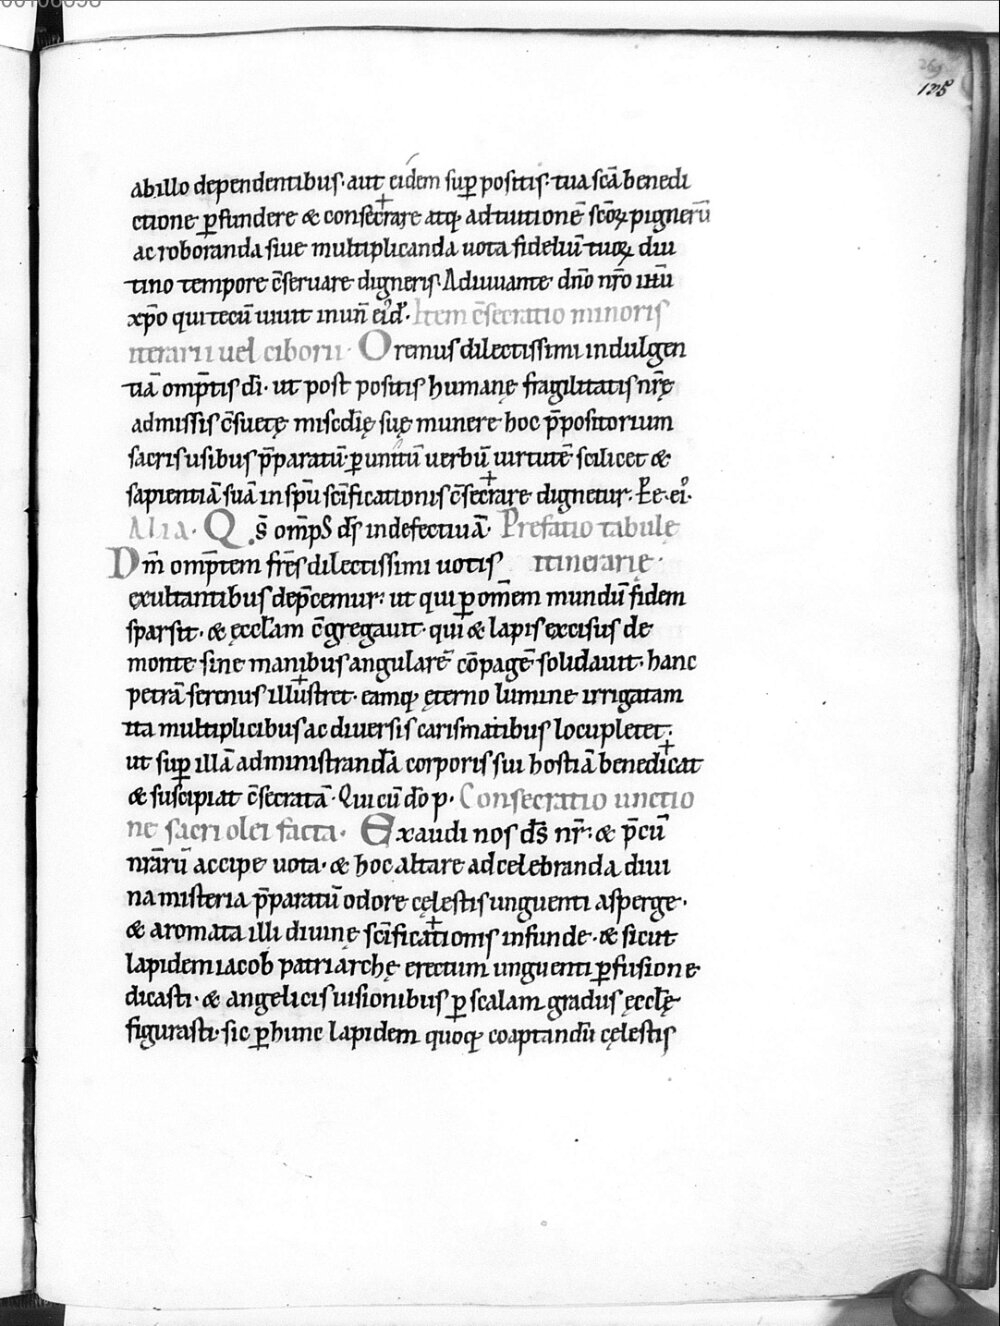 269
125
ab illo dependentibus· aut eidem sup̱ positis· tua sc̄a benedi
ctione ꝑfundere & consecrare atq; ad tuitionē sc̄oꝝ pignerū
ac roboranda siue multiplicanda uota fideliū tuoꝝ diu
tino tempore c̄seruare digneris. Adiuuante dn̄o nr̄o ih̄u
xp̄o qui tecū uiuit in un̄ ei͛d· Item c̄secratio minoris
iterarii uel ciborii· Oremus dilectissimi indulgen
tiā omp̄tis dī· ut post positis humanę fragilitatis nr̄ę
admissis c̄suetę misc̄dię suę munere hoc p̄positorium
sacris usibus p̄paratū· ꝑ unitū uerbū uirtutē scilicet &
sapientiā suā in sp̄u sc̄ificationis c̄secrare dignetur·
Alia· Q̄s omp̄s d̄s indefectiuā· Prefatio tabulę
Dm̄ omp̄tem fr̄es dilectissimi uotis itinerarię·
exultantibus dep̄cemur: ut qui ꝑ om̄em mundū fidem
sparsit· & ęccl̄am c̄gregauit· qui & lapis excisus de
monte sine manibus angularē cōpagē solidauit· hanc
petrā serenus illustret· eamq; ęterno lumine irrigatam
ita multiplicibus ac diuersis carismatibus locupletet:
ut sup̱ illā administrandā corporis sui hostiā benedicat
& suscipiat c̄secratā· Qui cū d̄o p· Consecratio unctio
ne sacri olei facta· Exaudi nos d̄s nr̄· & p̄cū
nr̄arū accipe uota· & hoc altare ad celebranda diui
na misteria p̄paratū odore cęlestis unguenti asperge·
& aromata illi diuinę sc̄ificationis infunde· & sicut
lapidem iacob patriarchę erectum unguenti ꝑfusione
dicasti· & angelicis uisionibus ꝑ scalam gradus ęccl̄ę
figurasti· sic ꝑ hunc lapidem quoq; coaptandū cęlestis